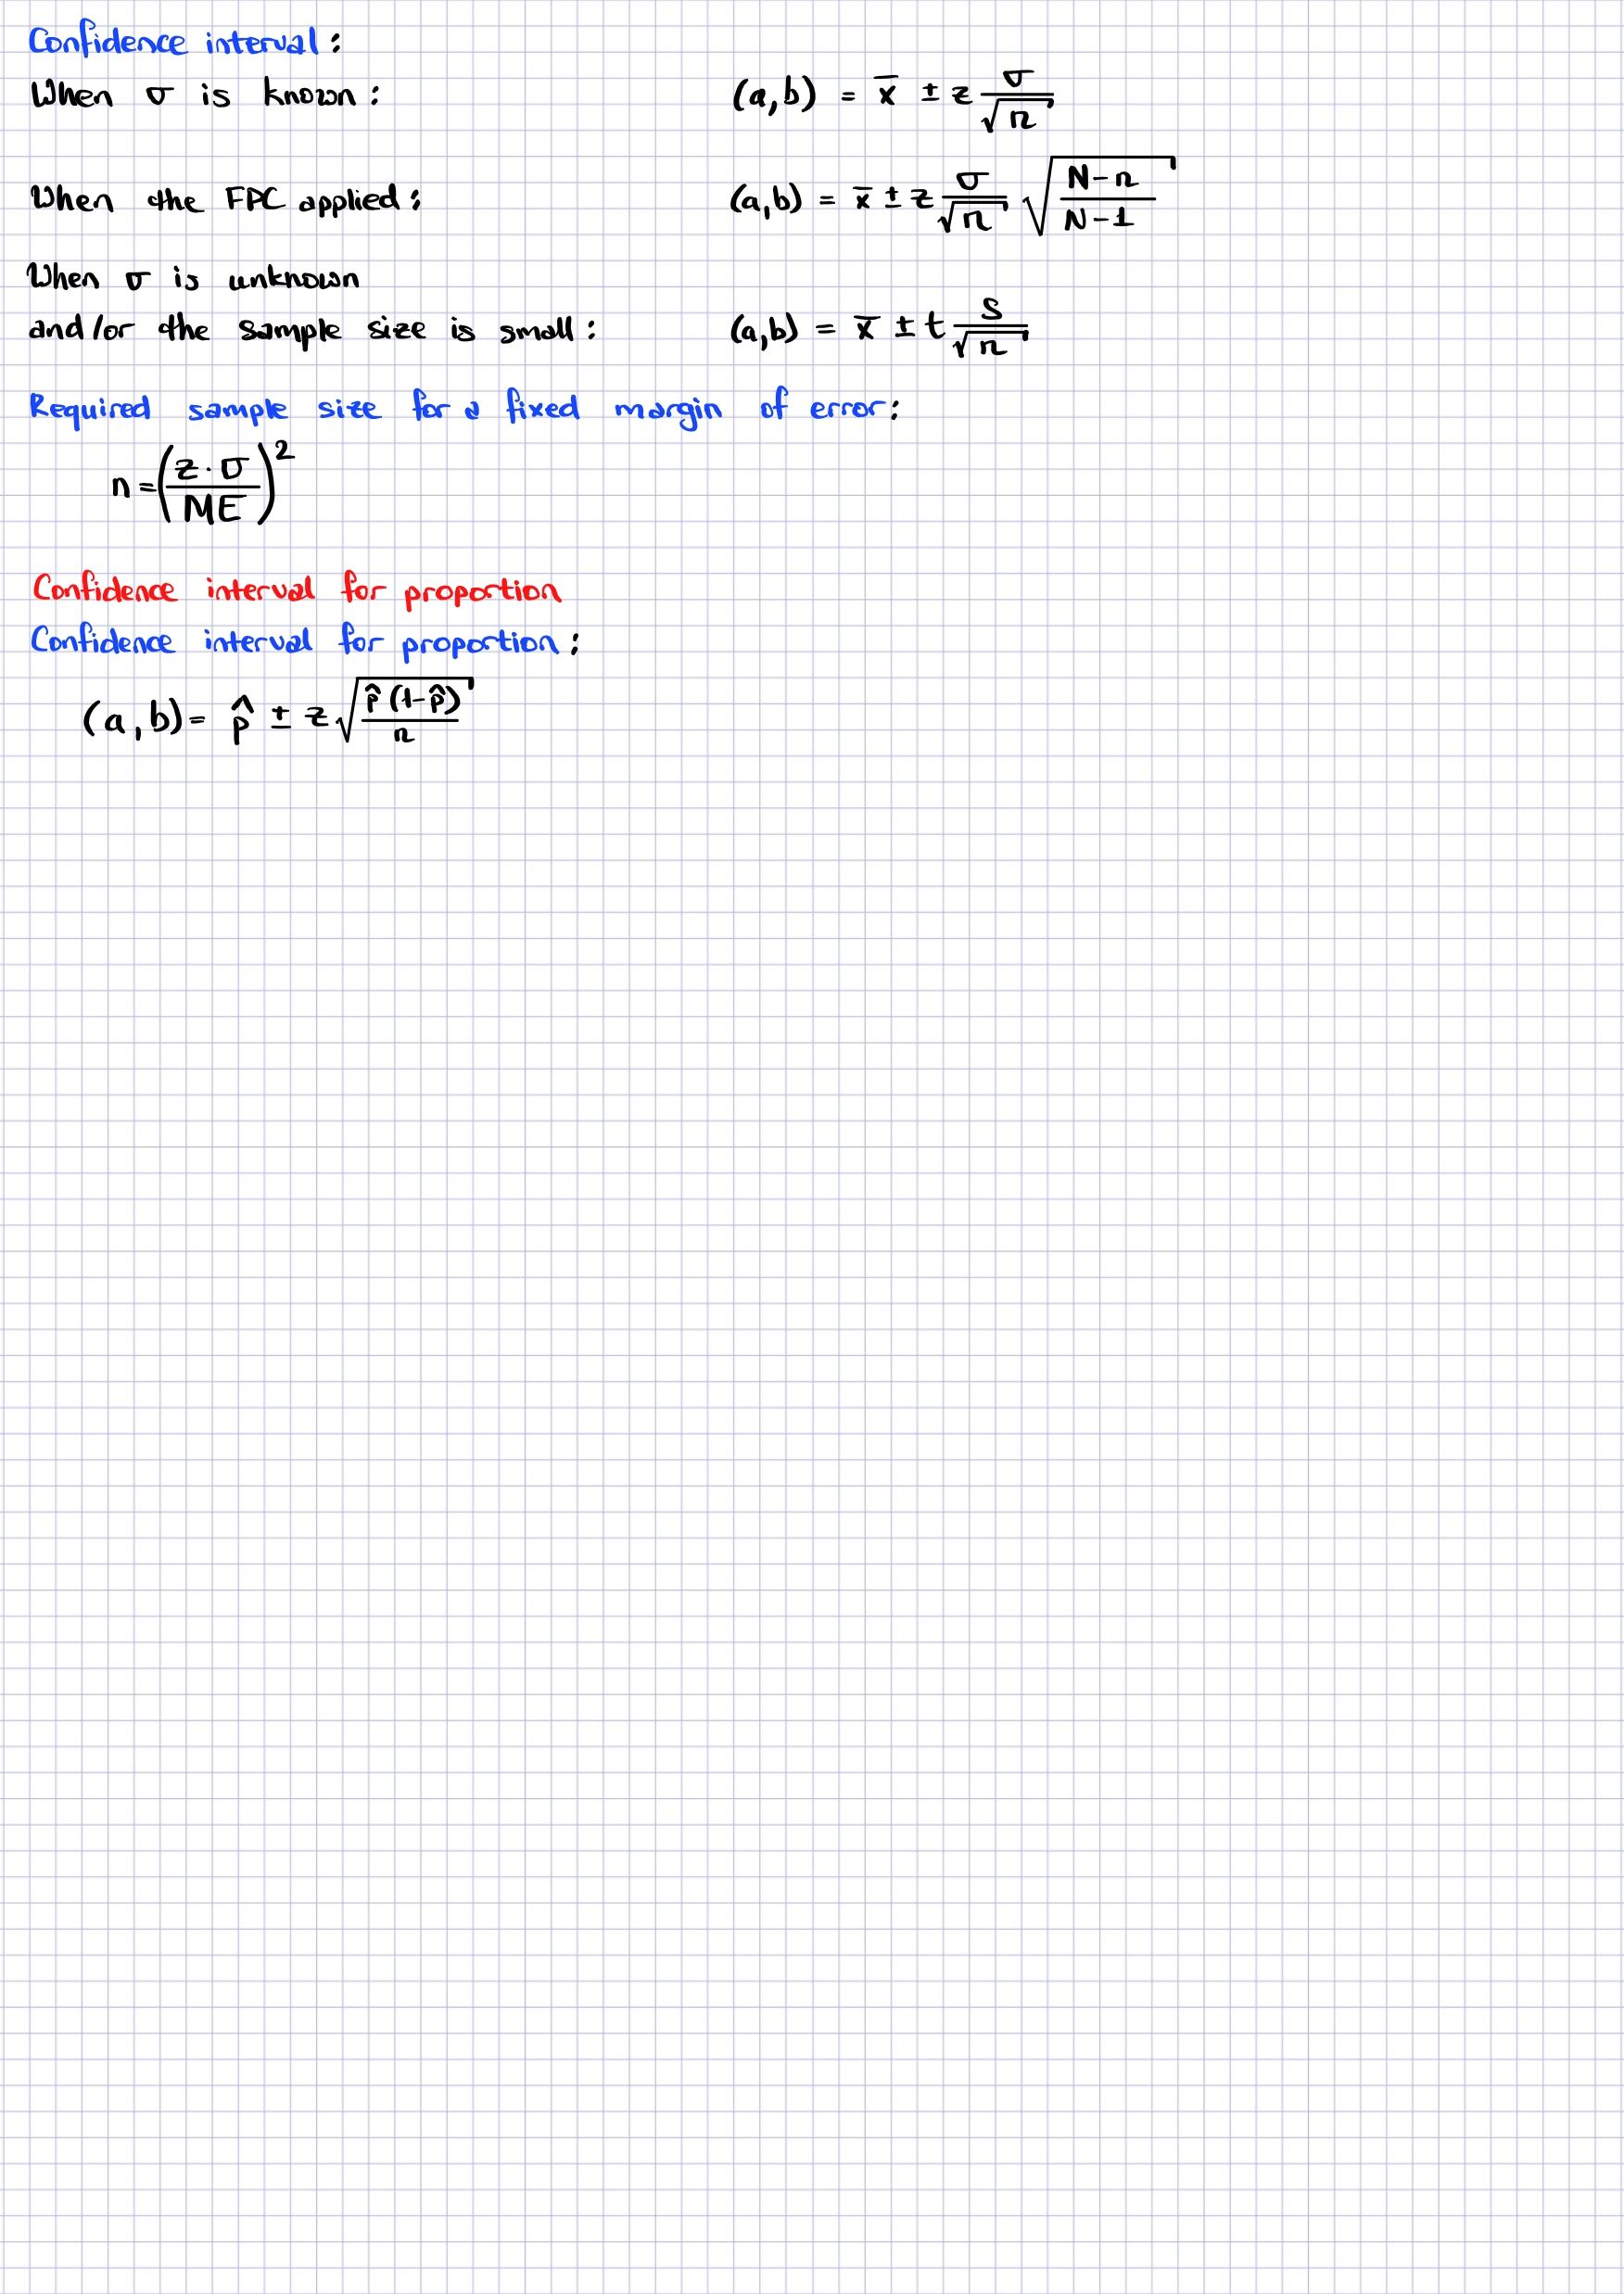 Confidence interval:
When σ is known: (a,b) = x̄ ± z σ/√n
When the FPC applied: (a,b) = x̄ ± z σ/√n √((N-n)/(N-1))
When σ is unknown
and/or the sample size is small: (a,b) = x̄ ± t s/√n
Required sample size for a fixed margin of error:
n = ((z·σ)/ME)²
Confidence interval for proportion
Confidence interval for proportion:
(a,b) = p̂ ± z √(p̂(1-p̂)/n)